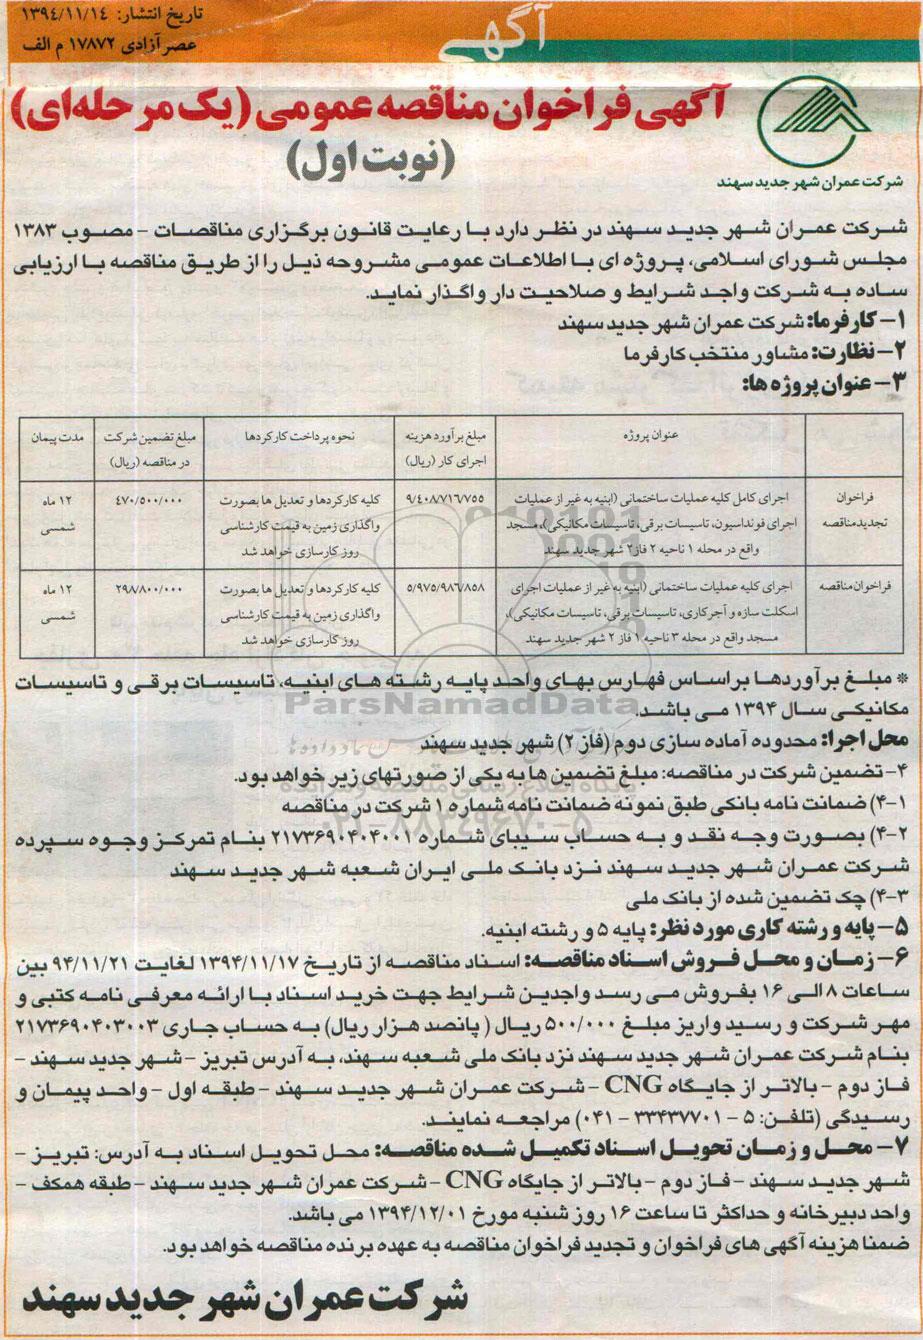 تاریخ انتشار: ۱۳۹۴/۱۱/۱۴
عصر آزادی ۱۷۸۷۲ م الف
آگهی
آگهی فراخوان مناقصه عمومی (یک مرحله‌ای)
(نوبت اول)
شرکت عمران شهر جدید سهند
شرکت عمران شهر جدید سهند در نظر دارد با رعایت قانون برگزاری مناقصات - مصوب ۱۳۸۳
مجلس شورای اسلامی، پروژه ای با اطلاعات عمومی مشروحه ذیل را از طریق مناقصه با ارزیابی
ساده به شرکت واجد شرایط و صلاحیت دار واگذار نماید.
۱- کارفرما: شرکت عمران شهر جدید سهند
۲- نظارت: مشاور منتخب کارفرما
۳- عنوان پروژه ها:
عنوان پروژه
مبلغ برآورد هزینه
اجرای کار (ریال)
نحوه پرداخت کارکردها
مبلغ تضمین شرکت
در مناقصه (ریال)
مدت پیمان
فراخوان
تجدید مناقصه
اجرای کامل کلیه عملیات ساختمانی (ابنیه به غیر از عملیات
اجرای فونداسیون، تاسیسات برقی، تاسیسات مکانیکی)، مسجد
واقع در محله ۱ ناحیه ۲ فاز ۲ شهر جدید سهند
۹/۴۰۸۷۷۱۶/۷۵۵
کلیه کارکردها و تعدیل ها بصورت
واگذاری زمین به قیمت کارشناسی
روز کارسازی خواهد شد
۴۷۰/۵۰۰/۰۰۰
۱۲ ماه
شمسی
فراخوان مناقصه
اجرای کلیه عملیات ساختمانی (ابنیه به غیر از عملیات اجرای
اسکلت سازه و آجرکاری، تاسیسات برقی، تاسیسات مکانیکی)،
مسجد واقع در محله ۳ ناحیه ۱ فاز ۲ شهر جدید سهند
۵/۹۷۵/۹۸۶/۸۵۸
کلیه کارکردها و تعدیل ها بصورت
واگذاری زمین به قیمت کارشناسی
روز کارسازی خواهد شد
۲۹۸/۸۰۰/۰۰۰
۱۲ ماه
شمسی
* مبلغ برآوردها براساس فهارس بهای واحد پایه رشته های ابنیه، تاسیسات برقی و تاسیسات
مکانیکی سال ۱۳۹۴ می باشد.
ParsNamadData
محل اجرا: محدوده آماده سازی دوم (فاز ۲) شهر جدید سهند
۴- تضمین شرکت در مناقصه: مبلغ تضمین ها به یکی از صورتهای زیر خواهد بود.
۴-۱) ضمانت نامه بانکی طبق نمونه ضمانت نامه شماره ۱ شرکت در مناقصه
۴-۲) بصورت وجه نقد و به حساب سیبای شماره ۲۱۷۳۶۹۰۴۰۴۰۰۱ بنام تمرکز وجوه سپرده
شرکت عمران شهر جدید سهند نزد بانک ملی ایران شعبه شهر جدید سهند
۴-۳) چک تضمین شده از بانک ملی
۵- پایه و رشته کاری مورد نظر: پایه ۵ و رشته ابنیه.
۶- زمان و محل فروش اسناد مناقصه: اسناد مناقصه از تاریخ ۱۳۹۴/۱۱/۱۷ لغایت ۹۴/۱۱/۲۱ بین
ساعات ۸ الی ۱۶ بفروش می رسد واجدین شرایط جهت خرید اسناد با ارائه معرفی نامه کتبی و
مهر شرکت و رسید واریز مبلغ ۵۰۰/۰۰۰ ریال (پانصد هزار ریال) به حساب جاری ۲۱۷۳۶۹۰۴۰۳۰۰۳
بنام شرکت عمران شهر جدید سهند نزد بانک ملی شعبه سهند، به آدرس تبریز - شهر جدید سهند -
فاز دوم - بالاتر از جایگاه CNG - شرکت عمران شهر جدید سهند - طبقه اول - واحد پیمان و
رسیدگی (تلفن: ۵ - ۳۳۴۳۷۷۰۱ - ۰۴۱) مراجعه نمایند.
۷- محل و زمان تحویل اسناد تکمیل شده مناقصه: محل تحویل اسناد به آدرس: تبریز -
شهر جدید سهند - فاز دوم - بالاتر از جایگاه CNG - شرکت عمران شهر جدید سهند - طبقه همکف -
واحد دبیرخانه و حداکثر تا ساعت ۱۶ روز شنبه مورخ ۱۳۹۴/۱۲/۰۱ می باشد.
ضمنا هزینه آگهی های فراخوان و تجدید فراخوان مناقصه به عهده برنده مناقصه خواهد بود.
شرکت عمران شهر جدید سهند